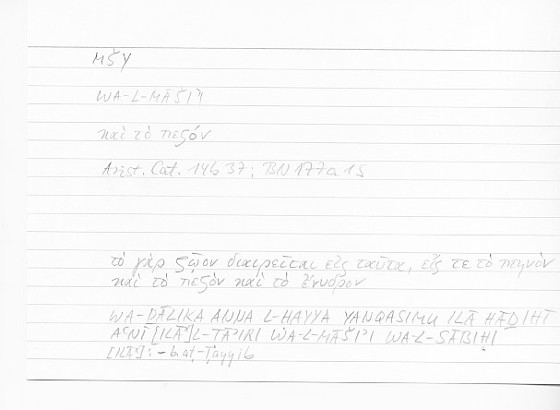 MŠY
WA-L-MĀŠIʾI
καὶ τὸ πεζόν
Arist. Cat. 14b 37; BN 177a 15
τὸ γὰρ ζῷον διαιρεῖται εἰς ταῦτα, εἴς τε τὸ πτηνὸν
καὶ τὸ πεζὸν καὶ τὸ ἔνυδρον
WA-ḎĀLIKA ANNA L-ḤAYYA YANQASIMU ILĀ HĀḎIHĪ
AʿNĪ [ILĀ] L-ṬĀʾIRI WA-L-MĀŠIʾI WA-L-SĀBIḤI
[ILĀ]: - b. aṭ-Ṭayyib